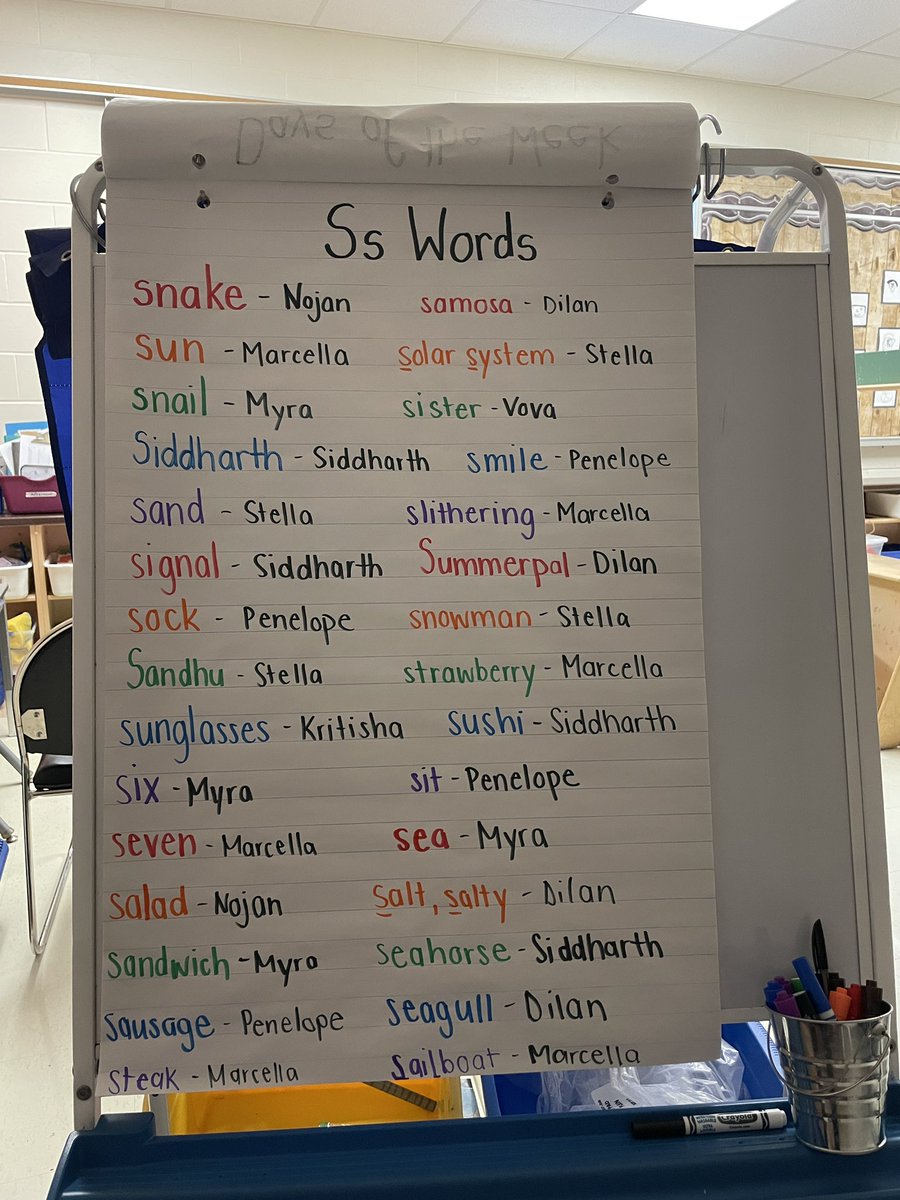 Days of the Week
Ss Words
snake - Nojan
samosa - Dilan
sun - Marcella
solar system - Stella
snail - Myra
sister - Vova
Siddharth - Siddharth
smile - Penelope
sand - Stella
slithering - Marcella
signal - Siddharth
Summerpal - Dilan
sock - Penelope
snowman - Stella
Sandhu - Stella
strawberry - Marcella
sunglasses - Kritisha
sushi - Siddharth
six - Myra
sit - Penelope
seven - Marcella
sea - Myra
salad - Nojan
salt, salty - Dilan
sandwich - Myra
seahorse - Siddharth
sausage - Penelope
seagull - Dilan
steak - Marcella
sailboat - Marcella
Crayola